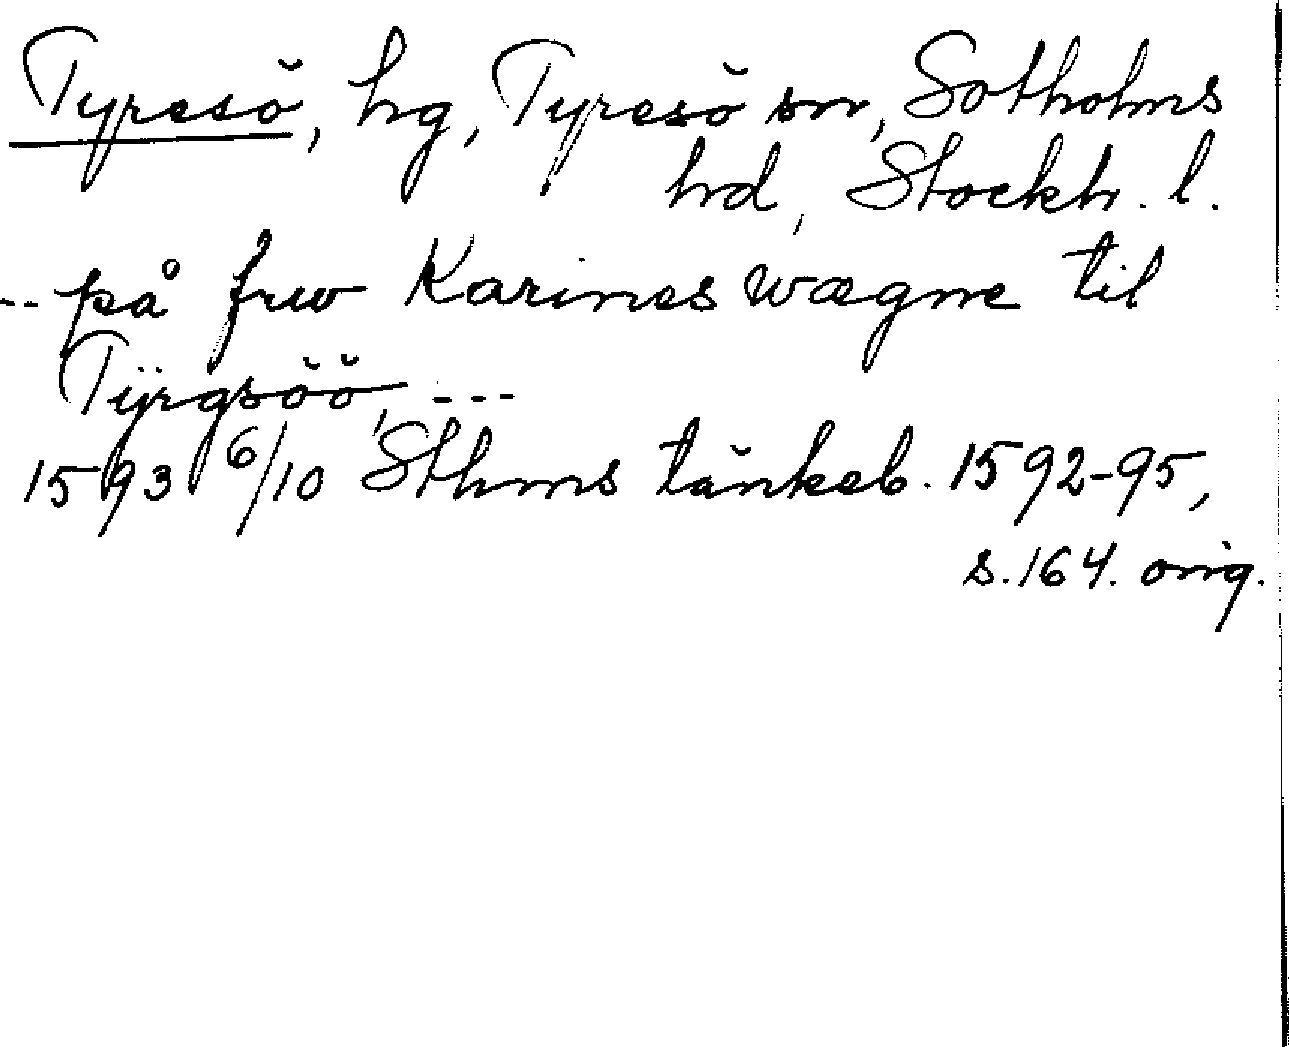 Tyresö, hg, Tyresö sn, Sotholms
hd, Stockh. l.
-- på frw Karines wægne til
Tÿrgsöö, ---
1593 6/10 Sthms tänkeb. 1592-95,
s. 164. orig.